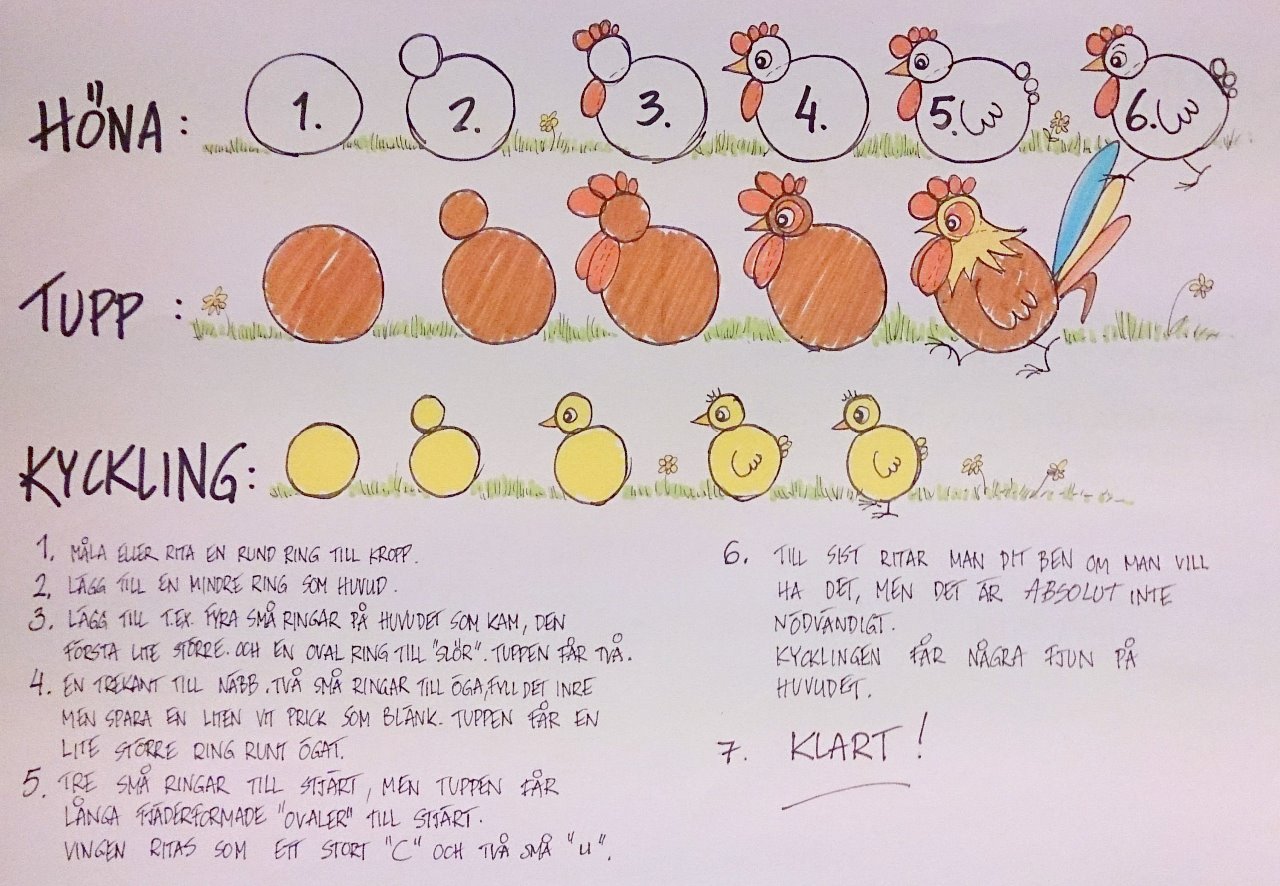 HÖNA:
1. 2. 3. 4. 5. 6.
TUPP:
KYCKLING:
1. MÅLA ELLER RITA EN RUND RING TILL KROPP.
2. LÄGG TILL EN MINDRE RING SOM HUVUD.
3. LÄGG TILL T.EX. FYRA SMÅ RINGAR PÅ HUVUDET SOM KAM, DEN
FÖRSTA LITE STÖRRE. OCH EN OVAL RING TILL "SLÖR". TUPPEN FÅR TVÅ.
4. EN TREKANT TILL NÄBB. TVÅ SMÅ RINGAR TILL ÖGA, FYLL DET INRE
MEN SPARA EN LITEN VIT PRICK SOM BLÄNK. TUPPEN FÅR EN
LITE STÖRRE RING RUNT ÖGAT.
5. TRE SMÅ RINGAR TILL STJÄRT, MEN TUPPEN FÅR
LÅNGA FJÄDERFORMADE "OVALER" TILL STJÄRT.
VINGEN RITAS SOM ETT STORT "C" OCH TVÅ SMÅ "U".
6. TILL SIST RITAR MAN DIT BEN OM MAN VILL
HA DET, MEN DET ÄR ABSOLUT INTE
NÖDVÄNDIGT.
KYCKLINGEN FÅR NÅGRA FJUN PÅ
HUVUDET.
7. KLART!